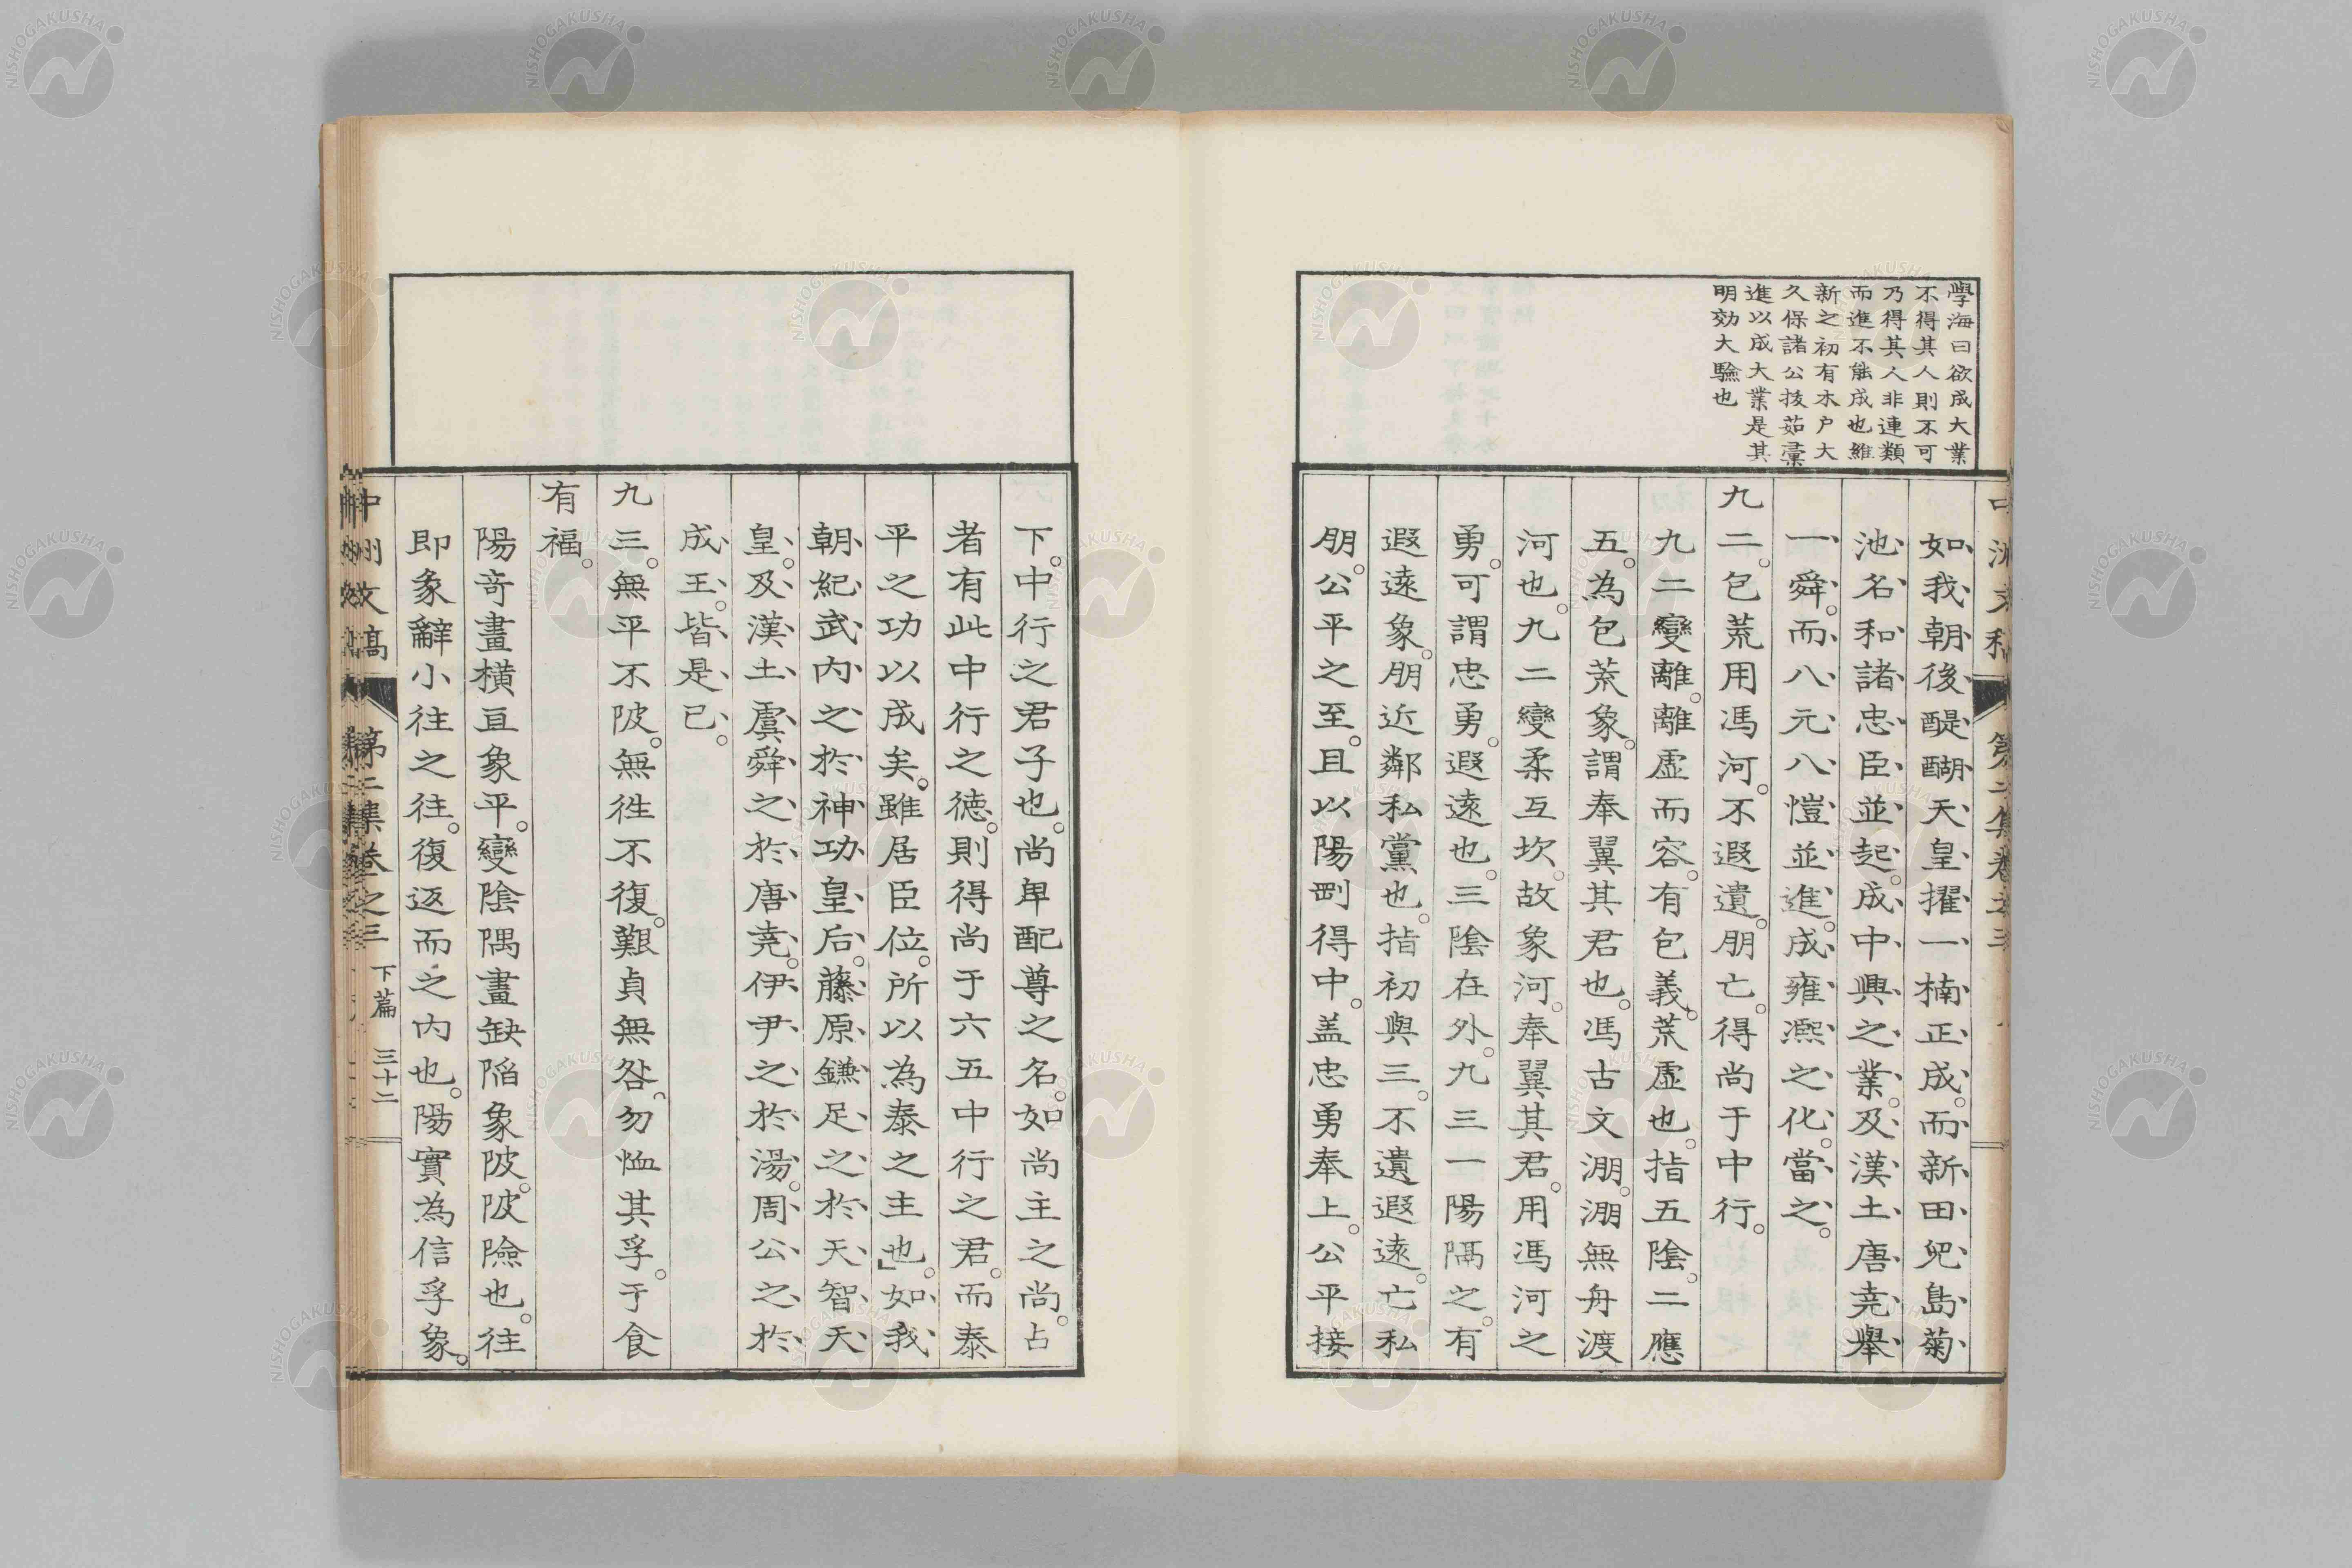 學海曰欲成大業
不得其人則不可
乃得其人非連類
而進不能成也維
新之初有木戸大
久保諸公拔茹彙
進以成大業是其
明効大驗也
如我朝後醍醐天皇擢一楠正成。而新田兒島菊
池名和諸忠臣並起。成中興之業。及漢土唐堯擧
一舜。而八元八愷並進。成雍凞之化。當之。
九二。包荒用馮河。不遐遺。朋亡。得尚于中行。
九二變離。離虛而容。有包義。荒虛也。指五陰。二應
五。為包荒象。謂奉翼其君也。馮古文淜。淜無舟渡
河也。九二變柔互坎。故象河。奉翼其君。用馮河之
勇。可謂忠勇。遐遠也。三陰在外。九三一陽隔之。有
遐遠象。朋近鄰私黨也。指初與三。不遺遐遠。亡私
朋。公平之至。且以陽剛得中。盖忠勇奉上。公平接
下。中行之君子也。尚卑配尊之名。如尚主之尚。占
者有此中行之德。則得尚于六五中行之君。而泰
平之功以成矣。雖居臣位。所以為泰之主也。」如我
朝紀武内之於神功皇后。藤原鎌足之於天智天
皇。及漢土虞舜之於唐堯。伊尹之於湯。周公之於
成王。皆是已。
九三。無平不陂。無徃不復。艱貞無咎。勿恤其孚。于食
有福。
陽奇畫橫亘象平。變陰隅畫缺陷象陂。陂險也。往
即彖辭小往之往。復返而之内也。陽實為信孚象。
中洲文稿 第二集卷之三 下篇 三十二